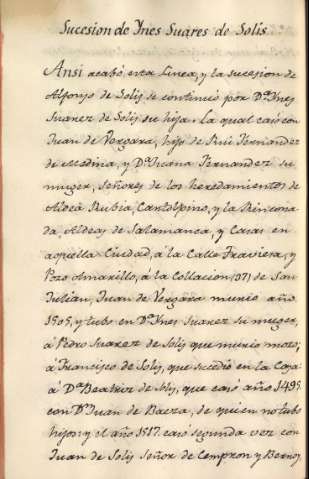 Sucesion de Ynes Suares de Solis
Ansi acabó esta linea, y la sucesion de
Alfonso de Solis se continuó por Dª Ynes
Suarez de Solis su hija. La qual casó con
Juan de Vergara, hijo de Rui Fernandez
de Medina, y Dª Fernandez su
muger, Señores de los heredamientos de
Aldea Rubia, Cantalpino, y la Rincona
da, Aldeas de Salamanca, y Casas en
aquella Ciudad, á la Calle Traviesa, y
Pozo Amarillo, á la Collacion de San
Julian, Juan de Vergara murio año
1505, y tubo en Dª Ynes Suarez su muger,
á Pedro Suarez de Solis que murio mozo,
á Francisco de Solis, que sucedió en la Casa
á Dª Beatriz de Solis, que casó año 1495
con Dⁿ Juan de Baeza, de quien no tubo
hijos y el año 1517 casó segunda vez con
Juan de Solis Señor de Cempron y Bernoy